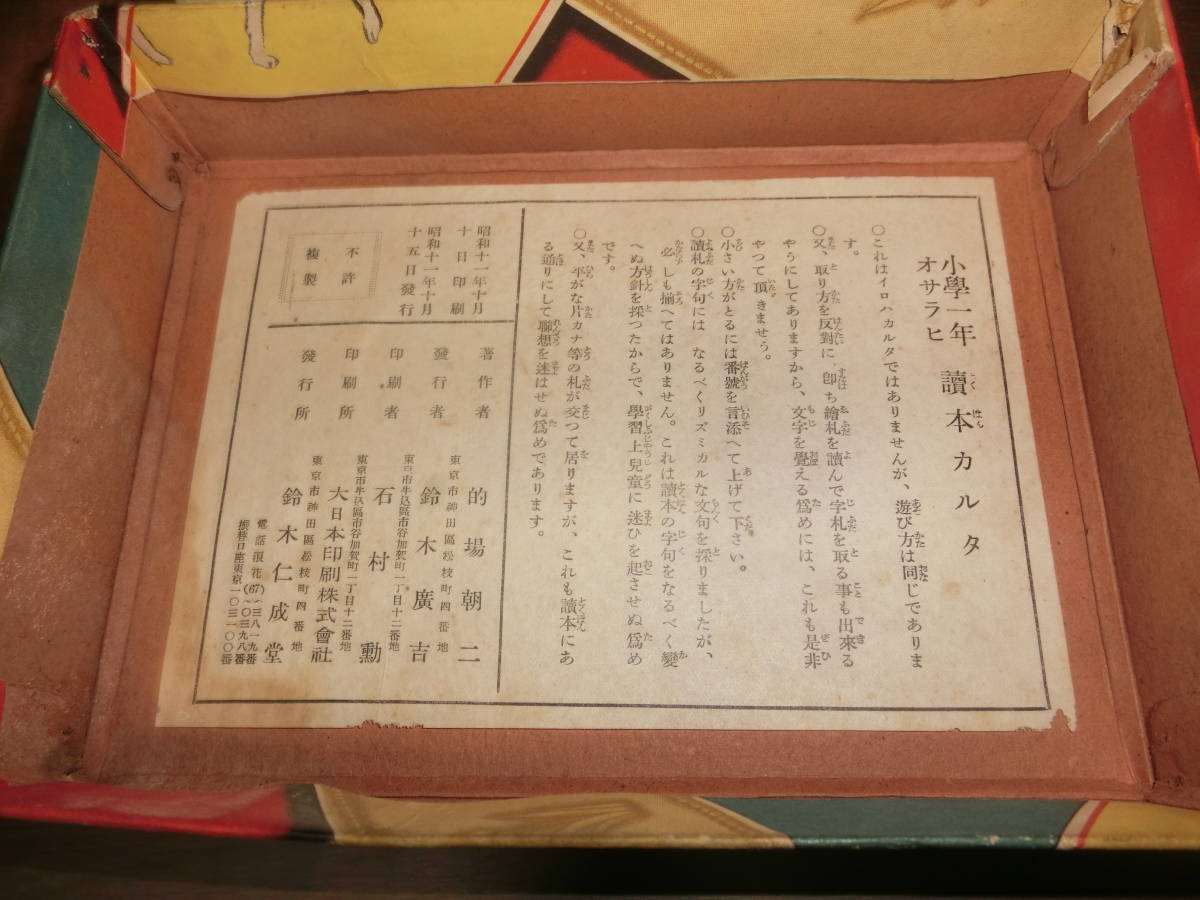 小學一年
オサラヒ
讀本カルタ
○これはイロハカルタではありませんが、遊び方は同じでありま
す。
○又、取り方を反對に、卽ち繪札を讀んで字札を取る事も出來る
やうにしてありますから、文字を覺える爲めには、これも是非
やつて頂きませう。
○小さい方がとるには番號を言添へて上げて下さい。
○讀札の字句には なるべくリズミカルな文句を採りましたが、
必しも揃へてはありません。これは讀本の字句をなるべく變
へぬ方針を採つたからで、學習上兒童に迷ひを起させぬ爲め
です。
○又、平がな片カナ等の札が交つて居りますが、これも讀本にあ
る通りにして聯想を迷はせぬ爲めであります。
昭和十一年十月
十日印刷
昭和十一年十月
十五日發行
不許
複製
著作者 的場朝二
東京市神田區松枝町四番地
發行者 鈴木廣吉
東京市牛込區市谷加賀町一丁目十二番地
印刷者 石村勳
東京市牛込區市谷加賀町一丁目十二番地
印刷所 大日本印刷株式會社
東京市神田區松枝町四番地
發行所 鈴木仁成堂
電話浪花(67)三八一九番
〇三九八番
振替口座東京一〇三一〇〇番